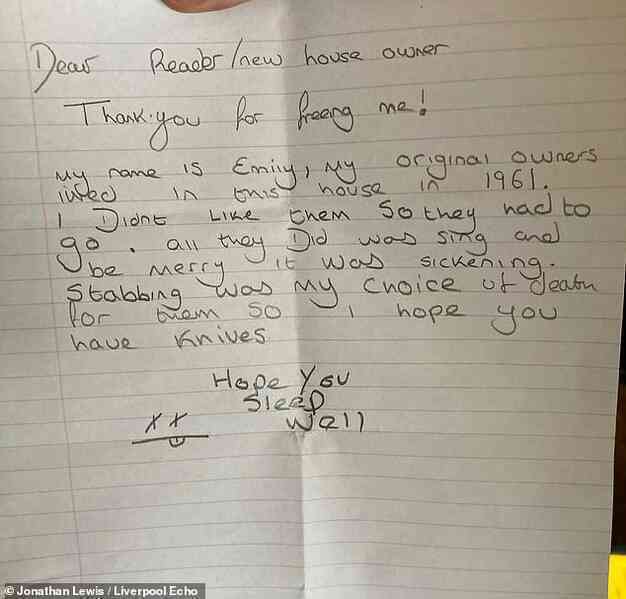 Dear Reader/new house owner
Thank you for freeing me!
My name is Emily, my original owners
lived in this house in 1961.
I Didnt Like them So they had to
go. all they Did was sing and
be merry it was sickening.
Stabbing was my choice of death
for them so I hope you
have Knives
Hope You
Sleep
Well
xx
© Jonathan Lewis / Liverpool Echo